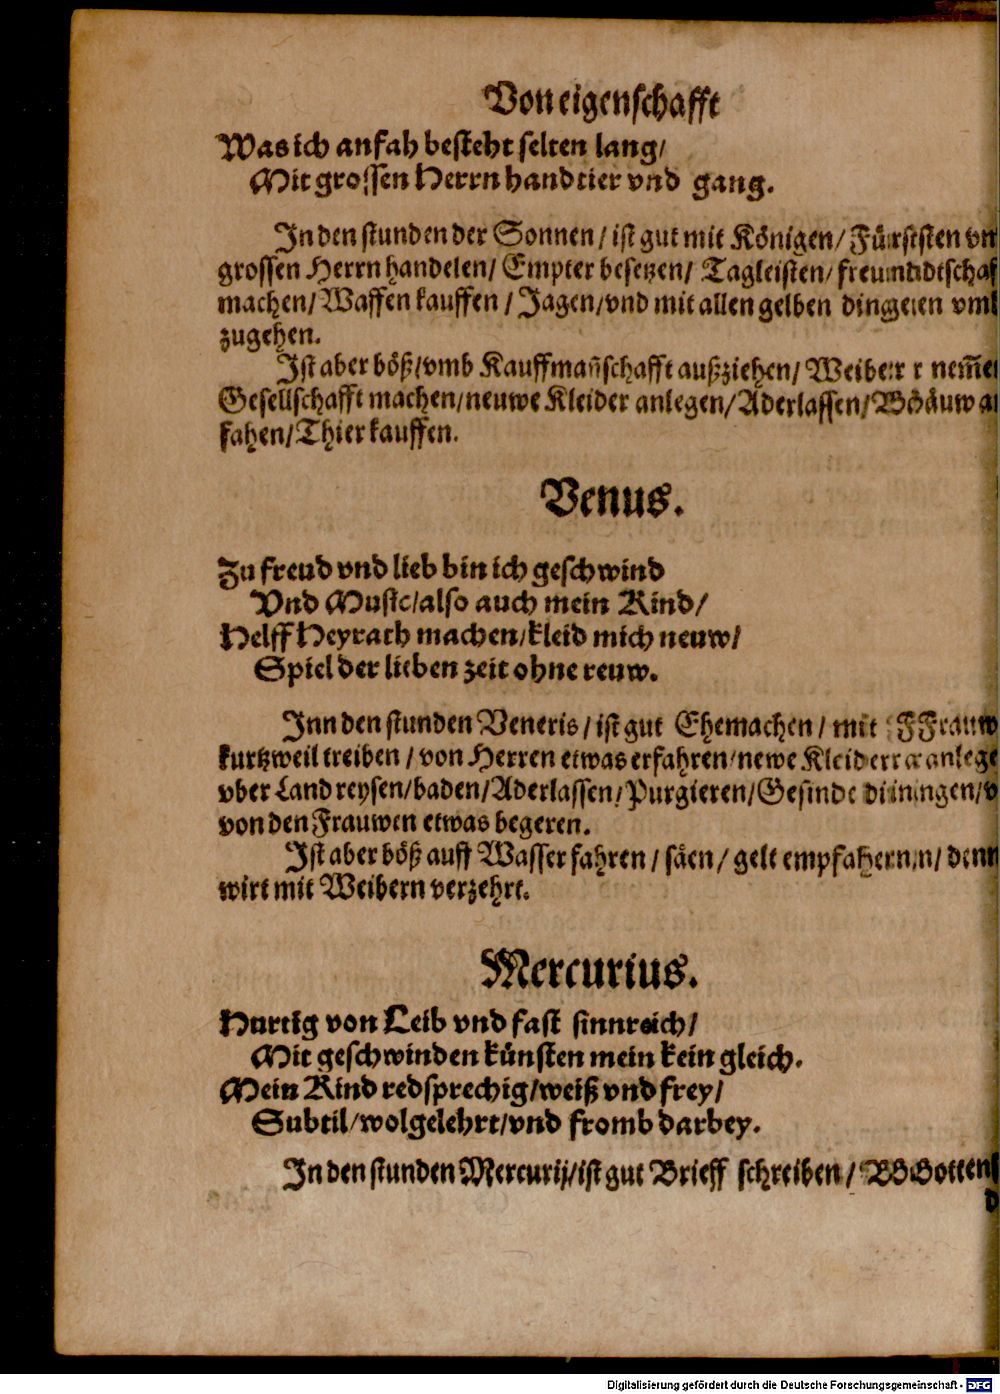 Von eigenschafft
Was ich anfah besteht selten lang/
Mit grossen Herrn handtier vnd gang.
In den stunden der Sonnen/ ist gut mit Königen/ Fürsten vn
grossen Herrn handelen/ Empter besetzen/ Tagleisten/ freundtschaf
machen/ Waffen kauffen / Jagen/ vnd mit allen gelben dingen vmb
zugehen.
Ist aber böß/ vmb Kauffmañschafft außziehen/ Weiber nem̃e
Gesellschafft machen/ neuwe Kleider anlegen/ Aderlassen/ Bäuw a
fahen/ Thier kauffen.
Venus.
Zu freud vnd lieb bin ich geschwind
Vnd Music/ also auch mein Kind/
Helff Heyrath machen/ kleid mich neuw/
Spiel der lieben zeit ohne reuw.
Inn den stunden Veneris/ ist gut Ehemachen / mit Frauw
kurtzweil treiben / von Herren etwas erfahren/ newe Kleider anlege
vber Land reysen/ baden/ Aderlassen/ Purgieren/ Gesinde dingen/ v
von den Frauwen etwas begeren.
Ist aber böß auff Wasser fahren / säen/ gelt empfahen/ denn
wirt mit Weibern verzehrt.
Mercurius.
Hurtig von Leib vnd fast sinnreich/
Mit geschwinden künsten mein kein gleich.
Mein Kind redsprechig/ weiß vnd frey/
Subtil/ wolgelehrt/ vnd fromb darbey.
In den stunden Mercurij/ ist gut Brieff schreiben / Botten
d
Digitalisierung gefördert durch die Deutsche Forschungsgemeinschaft - DFG